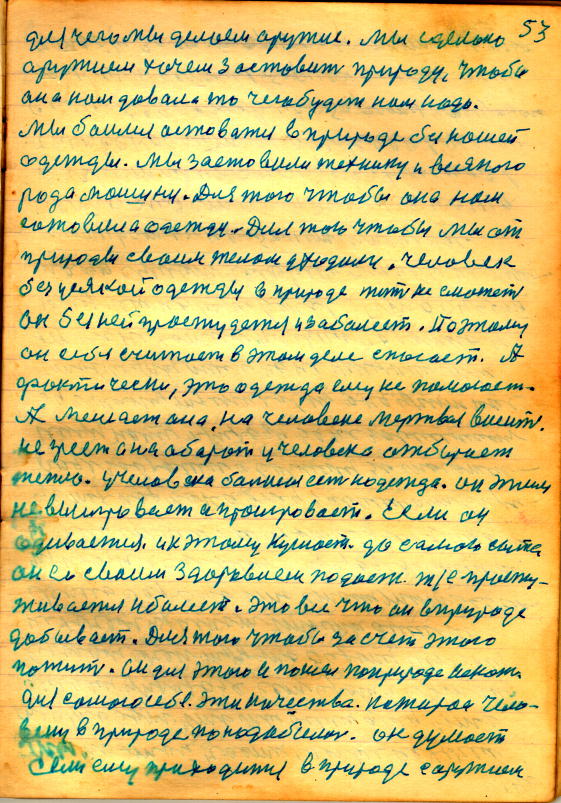 53
для чего мы делоем оружие. Мы сделоно
оружием хочем заставит природу, чтобы
она нам довала то чегобудет нам надо.
Мы боимся астоватся в природе без нашей
одежды. Мы заставили технику и всякого
рода машины. Для того чтобы она нам
готовила одежду. Для того чтобы мы от
природы своим телом уходили. Человек
без усякой одежды в природе жит не сможет
он без ней простудется и заболеет. Поэтому
он себя считает в этом деле спасает. А
фоктически, это одежда ему не помогает.
А мешает она, на человеке мертвая висит.
не греет она аборот у человека отбирает
тепло. у человека большая сет надежда. он этим
не выигрывает а проигровает. Если он
одивается. и к этому кушает. до самого сыта
он со своим здоровием подает. т/е просту-
живается и болеет. Это все что он в природе
добывает. Для того чтобы за счет этого
пожит. он для этого и пошел поприроде искат.
для самого себя. эти качества. которая чело-
веку в природе понадобилос. он думает
Если ему приходится в природе соружием